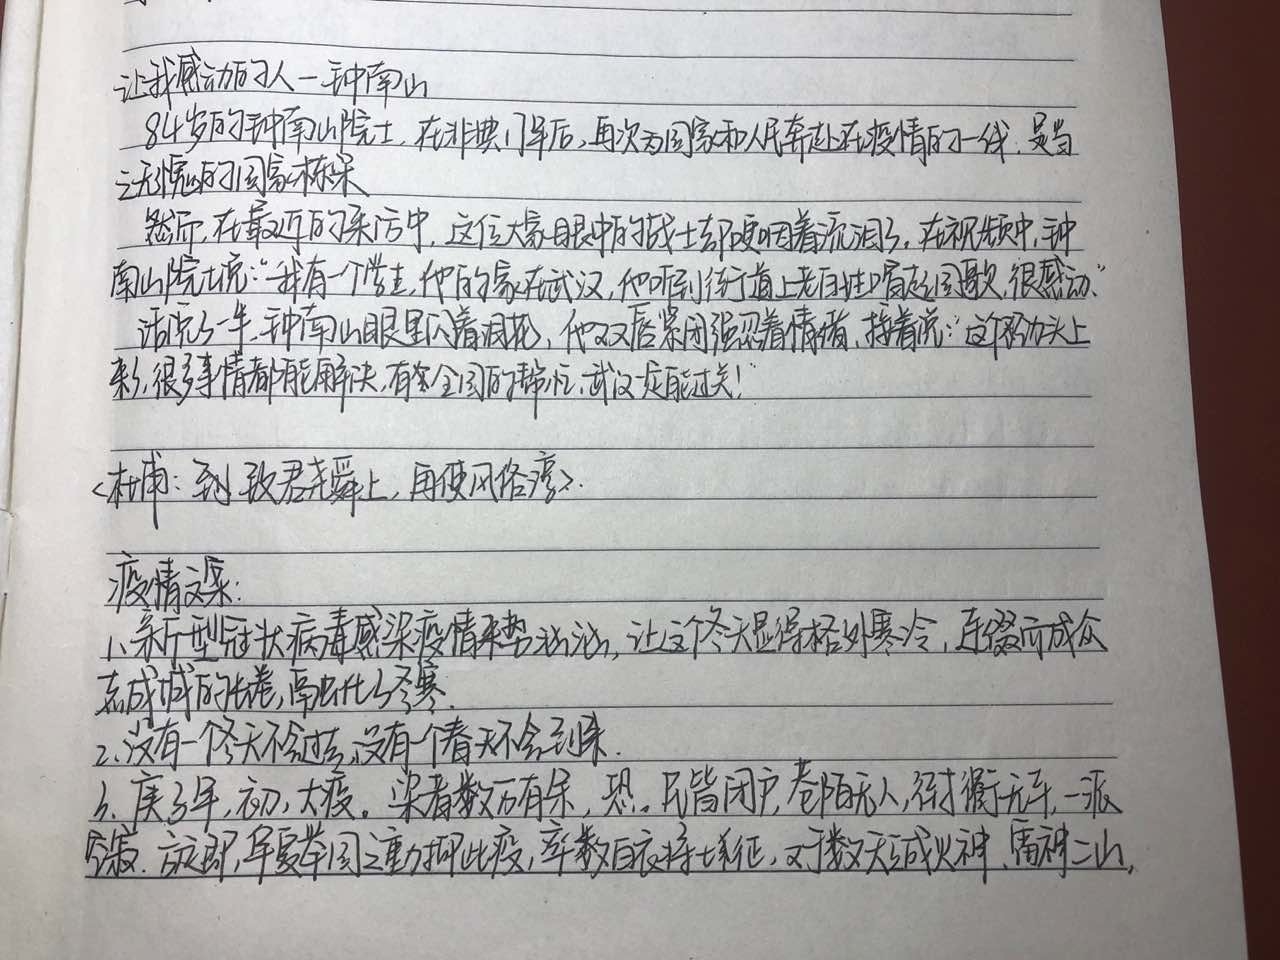 让我感动的人一钟南山
84岁的钟南山院士,在非典17年后,再次为国家和人民奔赴在疫情的一线,是当
之无愧的国家栋梁
然而,在最近的采访中,这位大家眼中的战士却哽咽着流泪了。在视频中,钟
南山院士说:“我有一个学生,他的家在武汉,他听到街道上老百姓唱起国歌,很感动.”
话说了一半,钟南山眼里闪着泪花,他双唇紧闭强忍着情绪,接着说:“这个劲头上
来了,很多事情都能解决,有全国的帮忙,武汉一定能过关!”
<杜甫: 到 致君尧舜上,再使风俗淳>.
疫情文案:
1、新型冠状病毒感染疫情来势汹汹,让这个冬天显得格外寒冷,连缀而成众
志成城的长卷,融化了冬寒.
2、没有一个冬天不会过去,没有一个春天不会到来.
3、庚子年,初,大疫。染者数万有余,恐。民皆闭户,巷陌无人,街衢无车,一派
令寂.    举国之力抑此疫,率数百衣将士   征,又于数天   成火神、雷神二山,